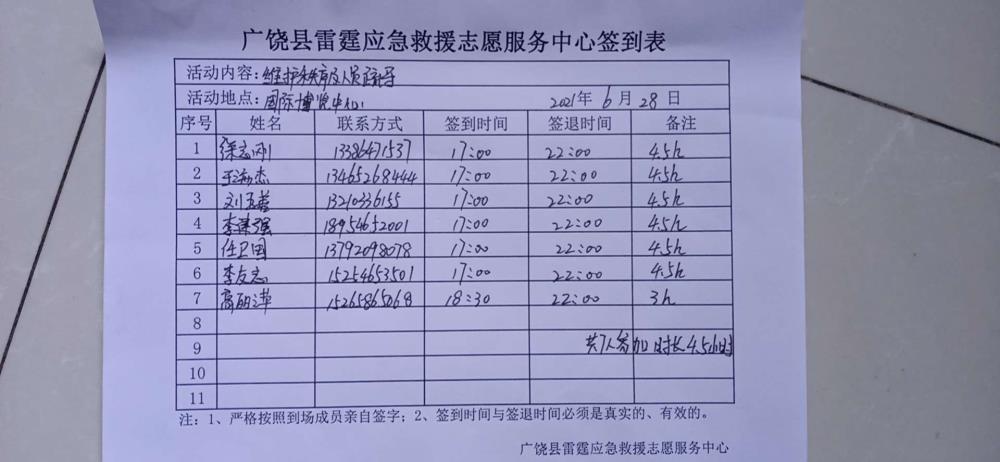 广饶县雷霆应急救援志愿服务中心签到表
活动内容：维护秩序及人员疏导
活动地点：国际博览中心 2021年 6月 28日
序号 姓名 联系方式 签到时间 签退时间 备注
1 徐志刚 13386471537 17:00 22:00 4.5h
2 13465268444 17:00 22:00 4.5h
3 13210336155 17:00 22:00 4.5h
4 18954652001 17:00 22:00 4.5h
5 任卫国 13792098078 17:00 22:00 4.5h
6 李友志 15254653501 17:00 22:00 4.5h
7 高丽萍 15265865068 18:30 22:00 3h
8
9 共7人参加 时长4.5小时
10
11
注：1、严格按照到场成员亲自签字；2、签到时间与签退时间必须是真实的、有效的。
广饶县雷霆应急救援志愿服务中心